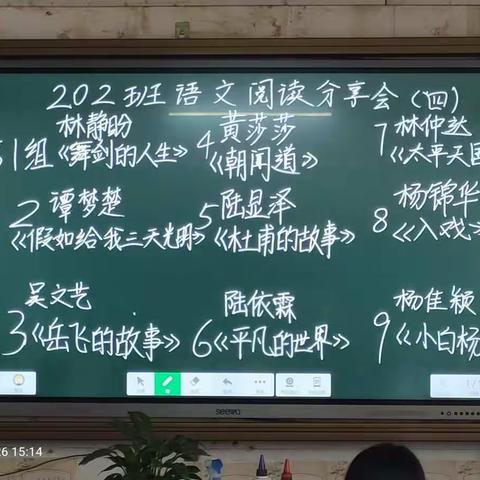 202班语文阅读分享会（四）
第1组 林静盼
《舞剑的人生》
4 黄莎莎
《朝闻道》
7 林仲达
《太平天国
2 谭梦楚
《假如给我三天光明》
5 陆显泽
《杜甫的故事》
8 杨锦华
《入戏》
吴文艺
3《岳飞的故事》
陆依霖
6《平凡的世界》
杨佳颖
9《小白杨
seewo
26 15:14